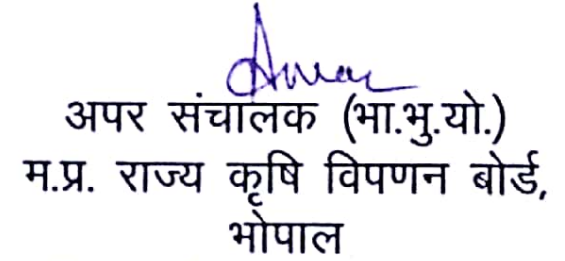 अपर संचालक (भा.भु.यो.)
म.प्र. राज्य कृषि विपणन बोर्ड,
भोपाल